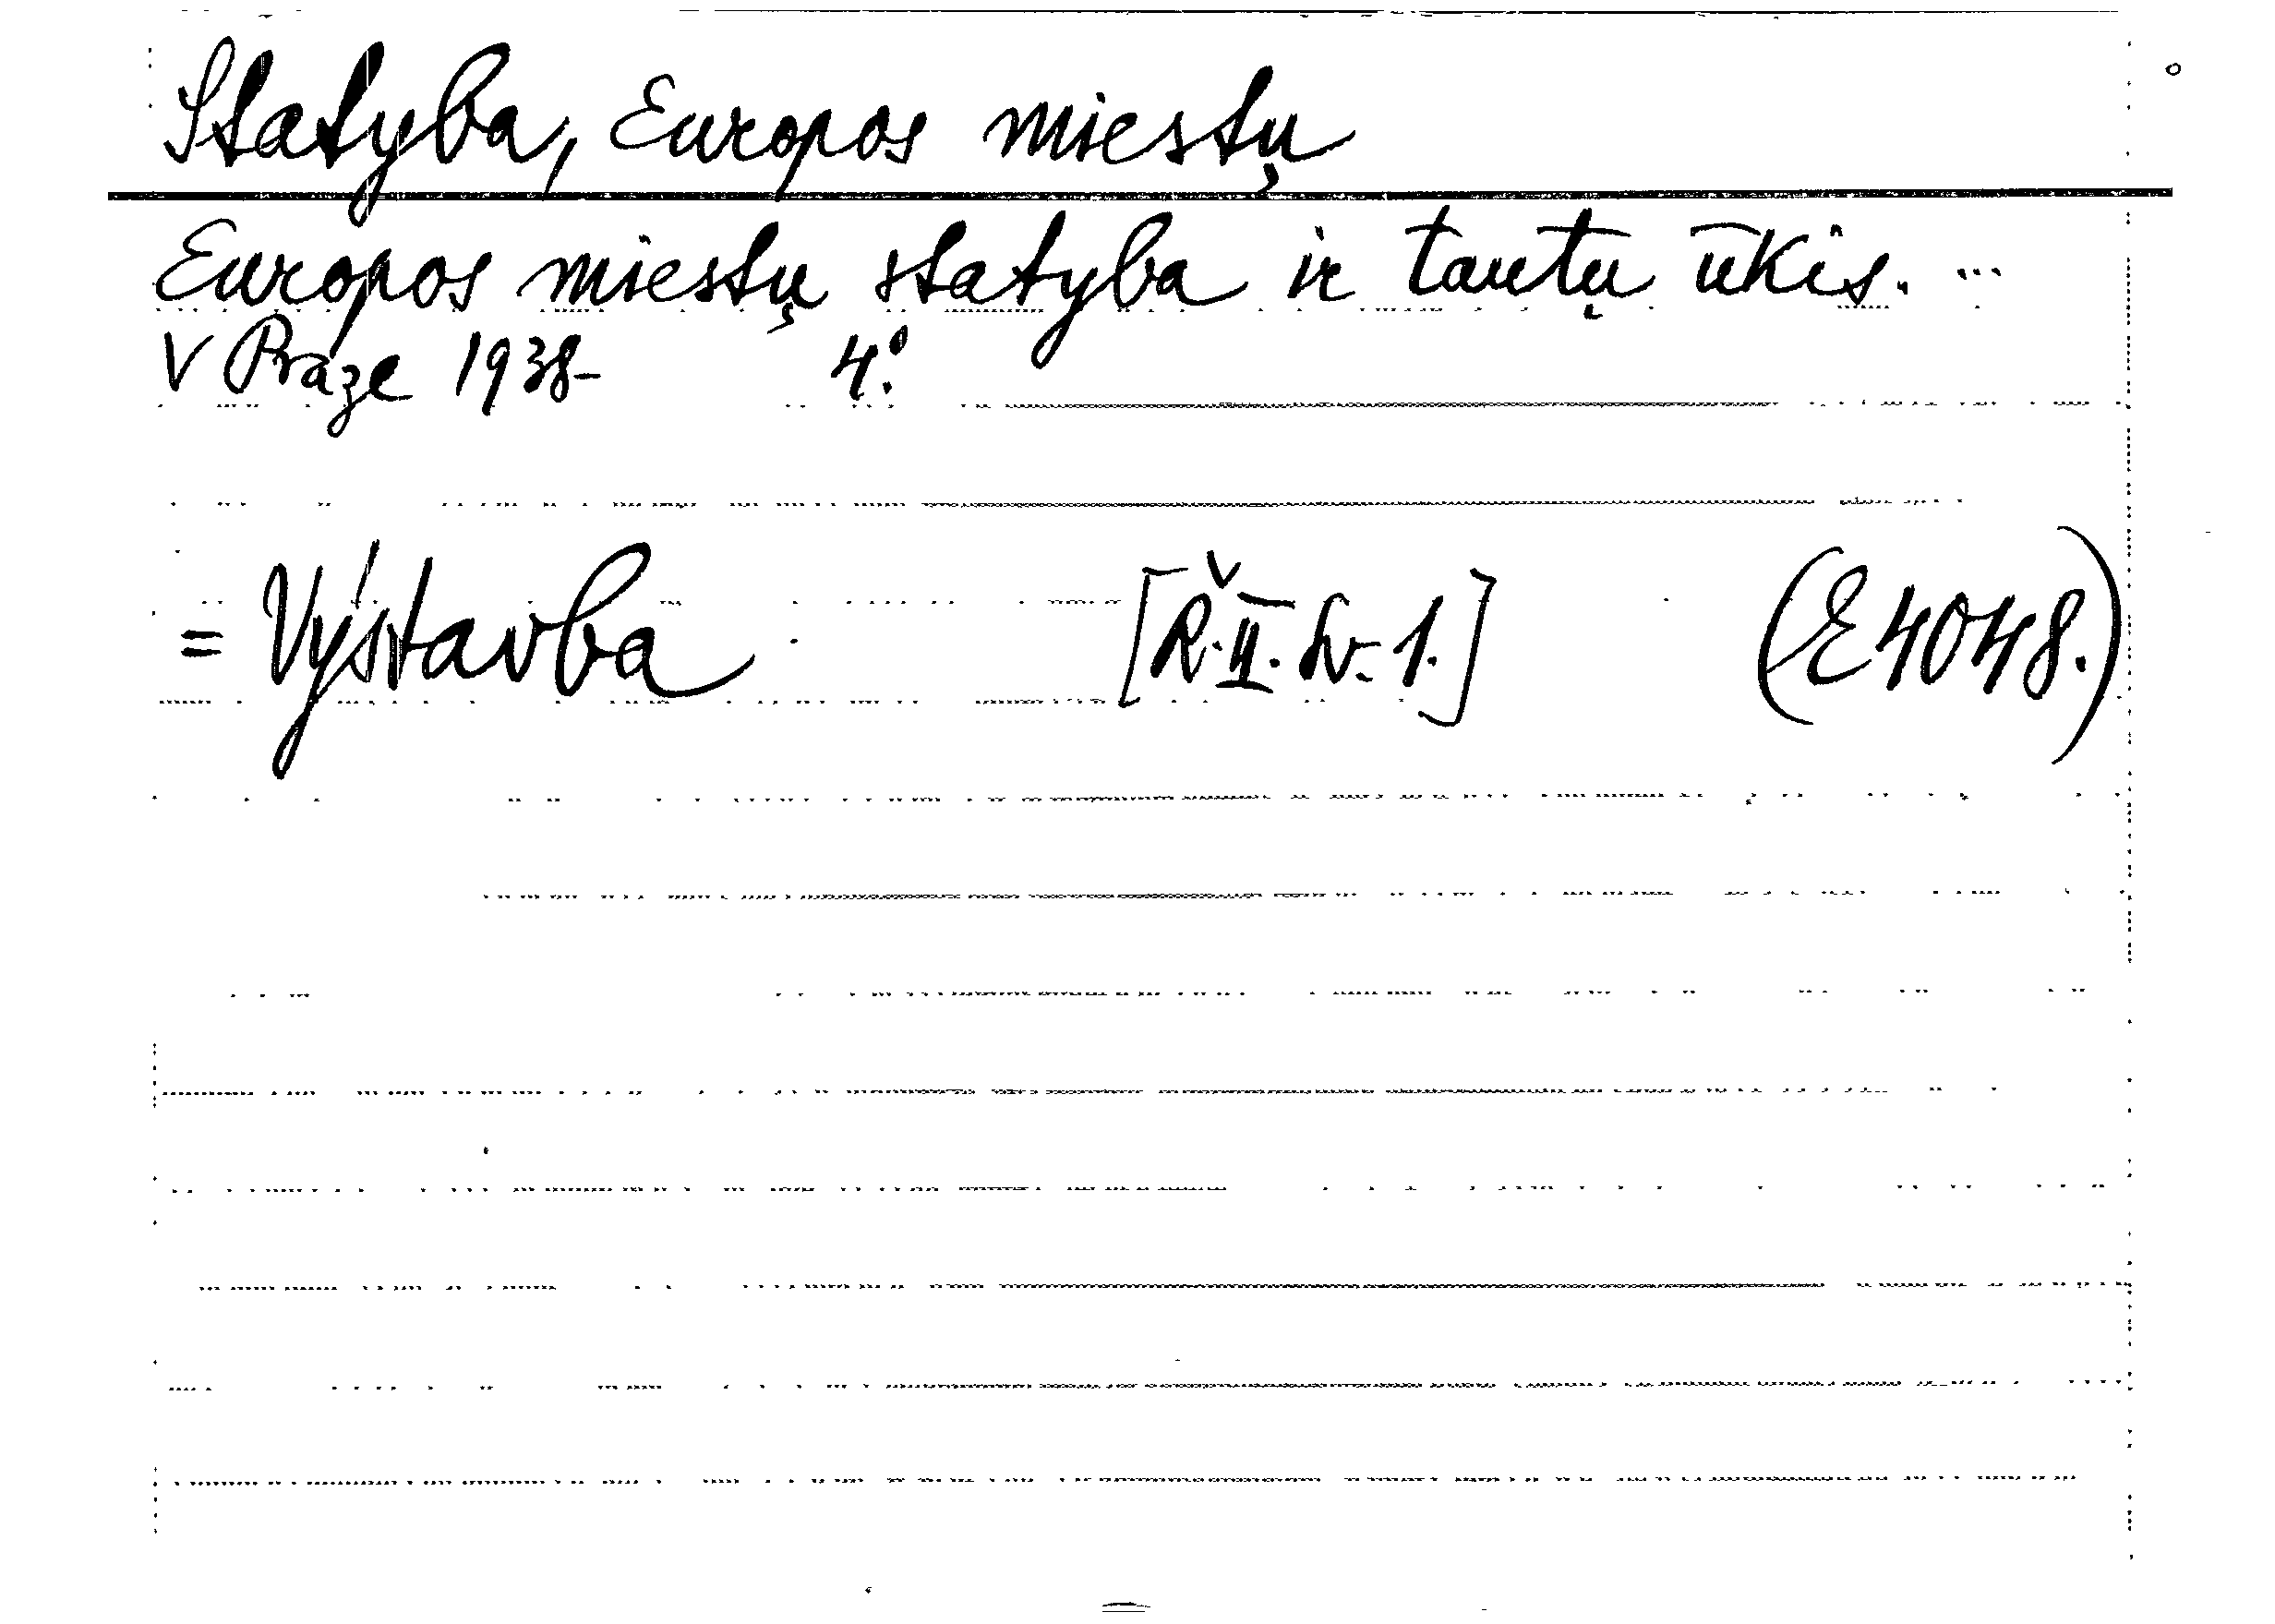 Statyba, Europos miestų
Europos miestų statyba ir tautų ūkis. ...
V Praze 1938- 4.°
= Výstavba [Ř. II. Sv. 1.] (E 4048.)